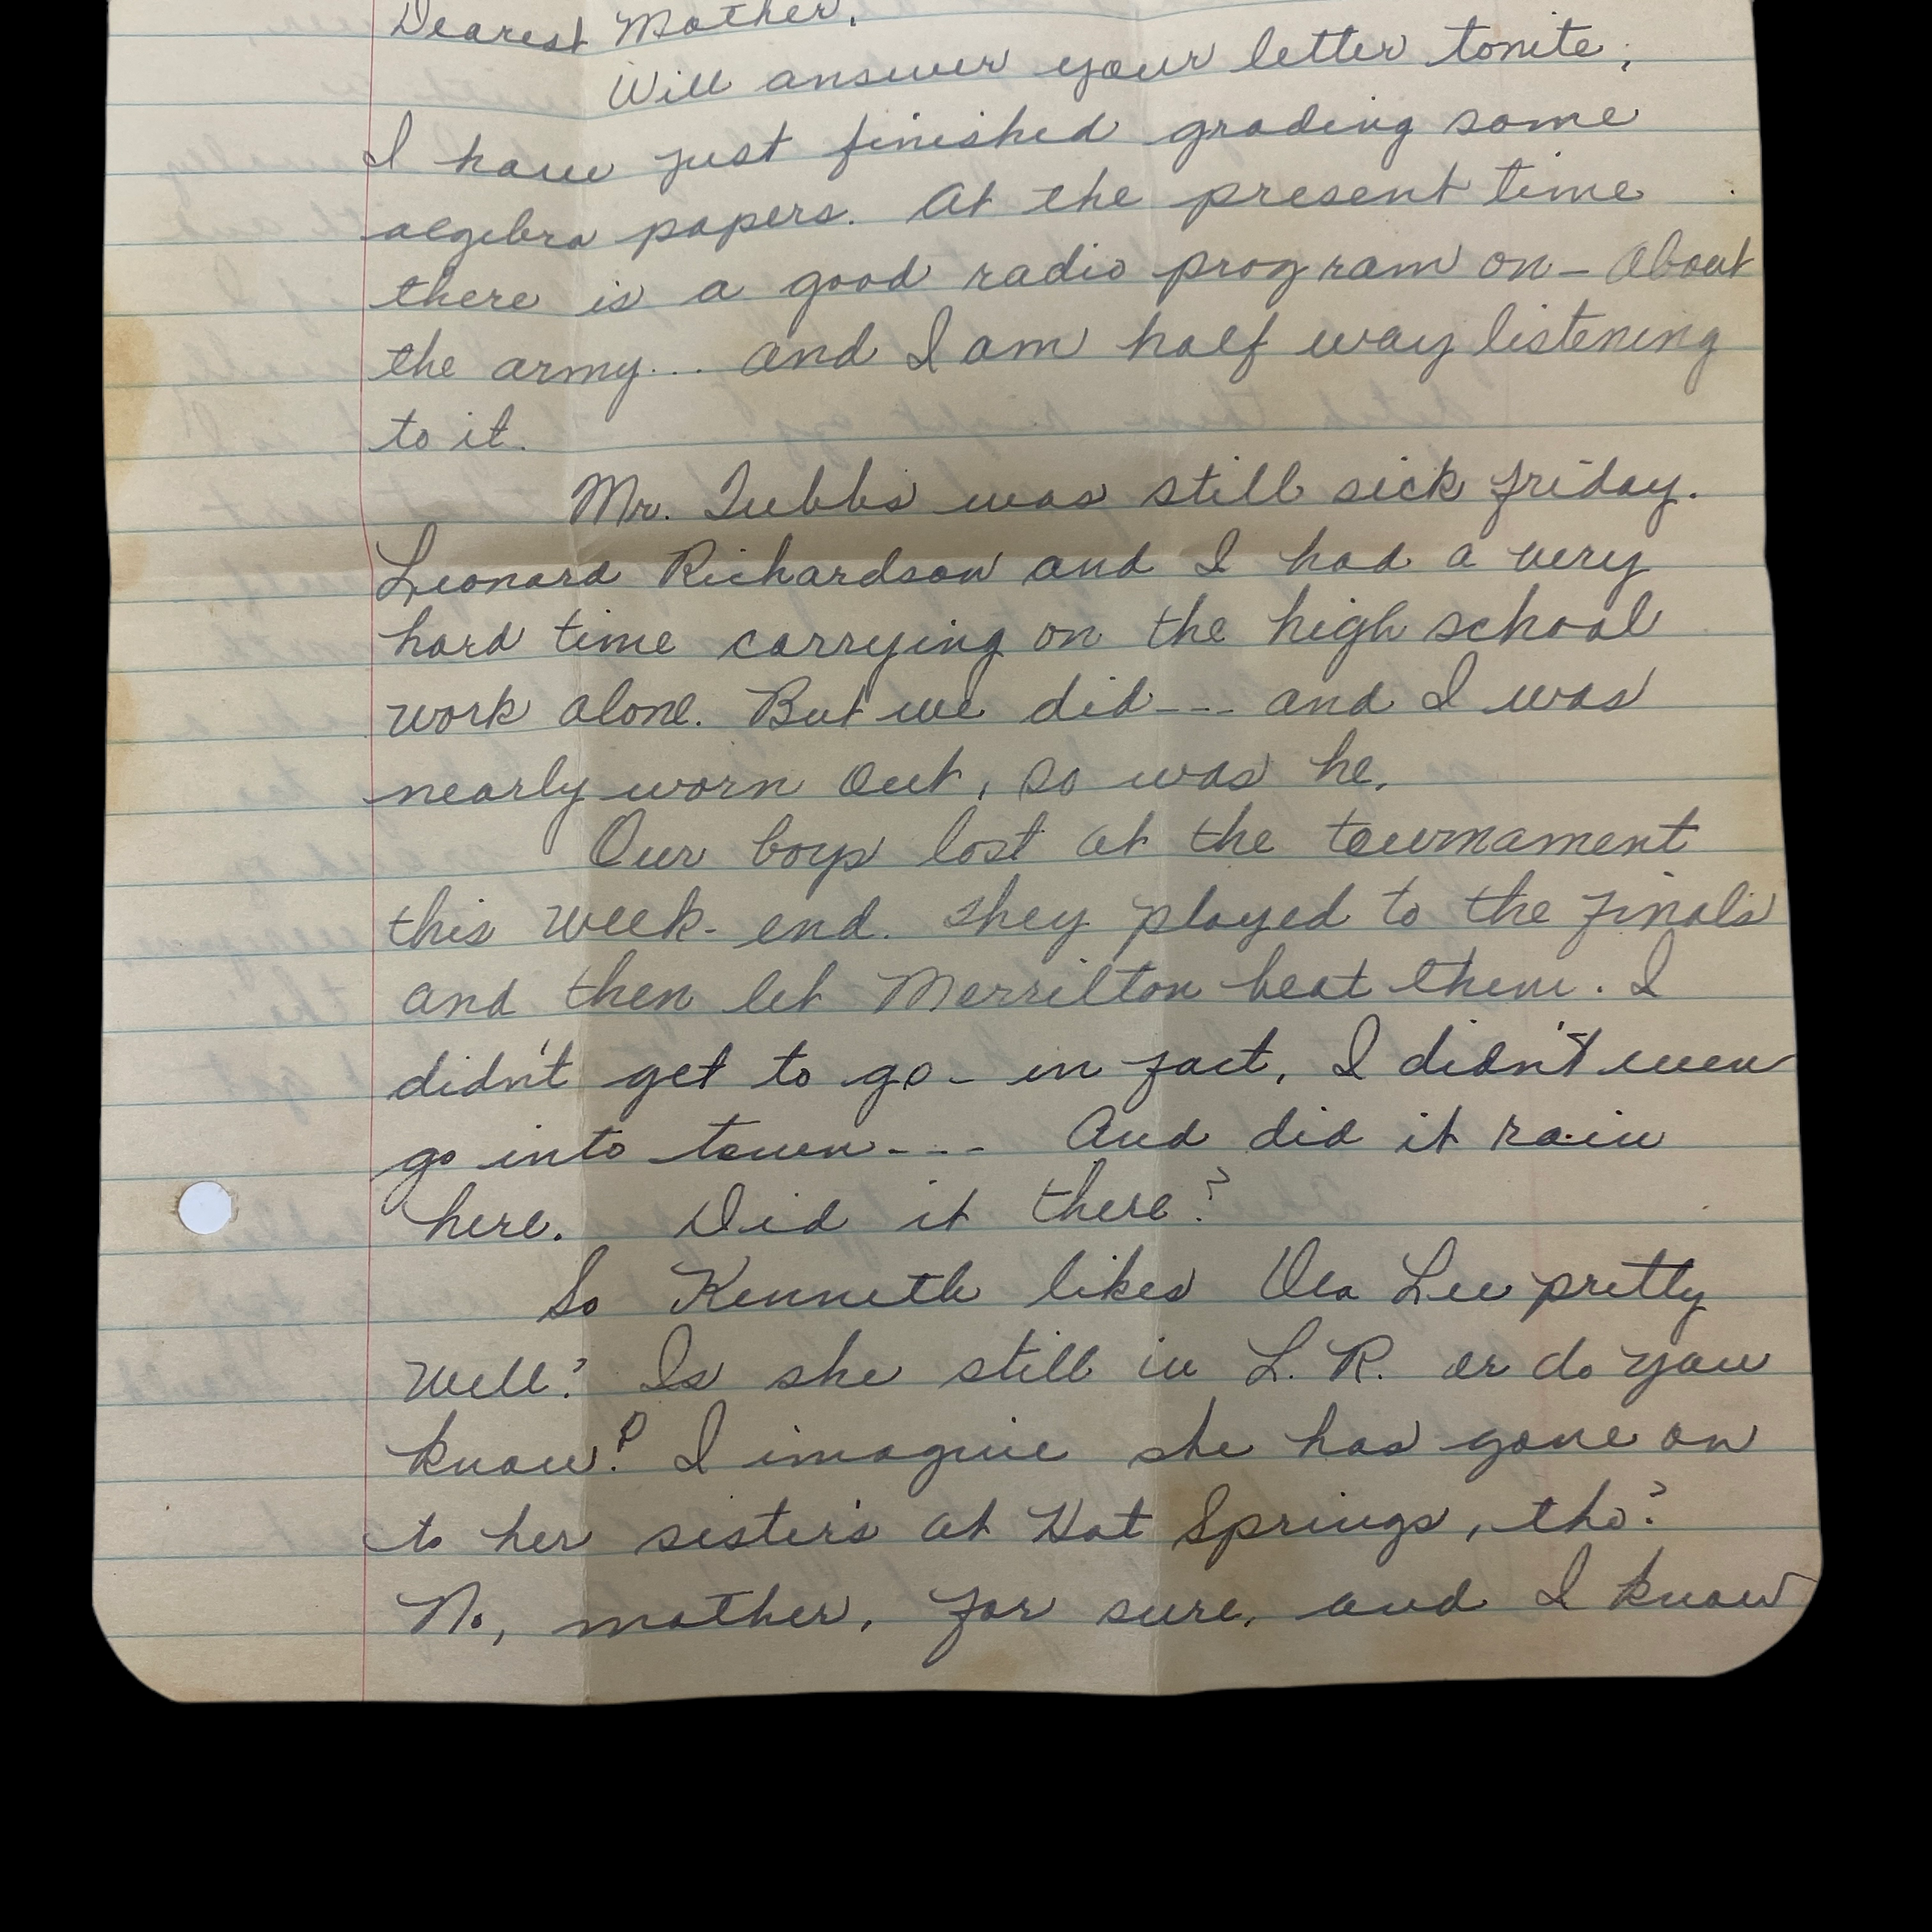 Dearest Mother,
Will answer your letter tonite;
I have just finished grading some
algebra papers. At the present time
there is a good radio program on - About
the army... and I am half way listening
to it.
Mr. Tubbs was still sick friday.
Leonard Richardson and I had a very
hard time carrying on the high school
work alone. But we did --- and I was
nearly worn out, so was he.
Our boys lost at the tournament
this week-end. They played to the finals
and then let Merrilton beat them. I
didn't get to go - in fact, I didn't even
go into town --- And did it rain
here. Did it there?
So Kenneth likes Vea Lee pretty
well? Is she still in L.R. or do you
know? I imagine she has gone on
to her sister's at Hot Springs, tho?
No, mother, for sure, and I know